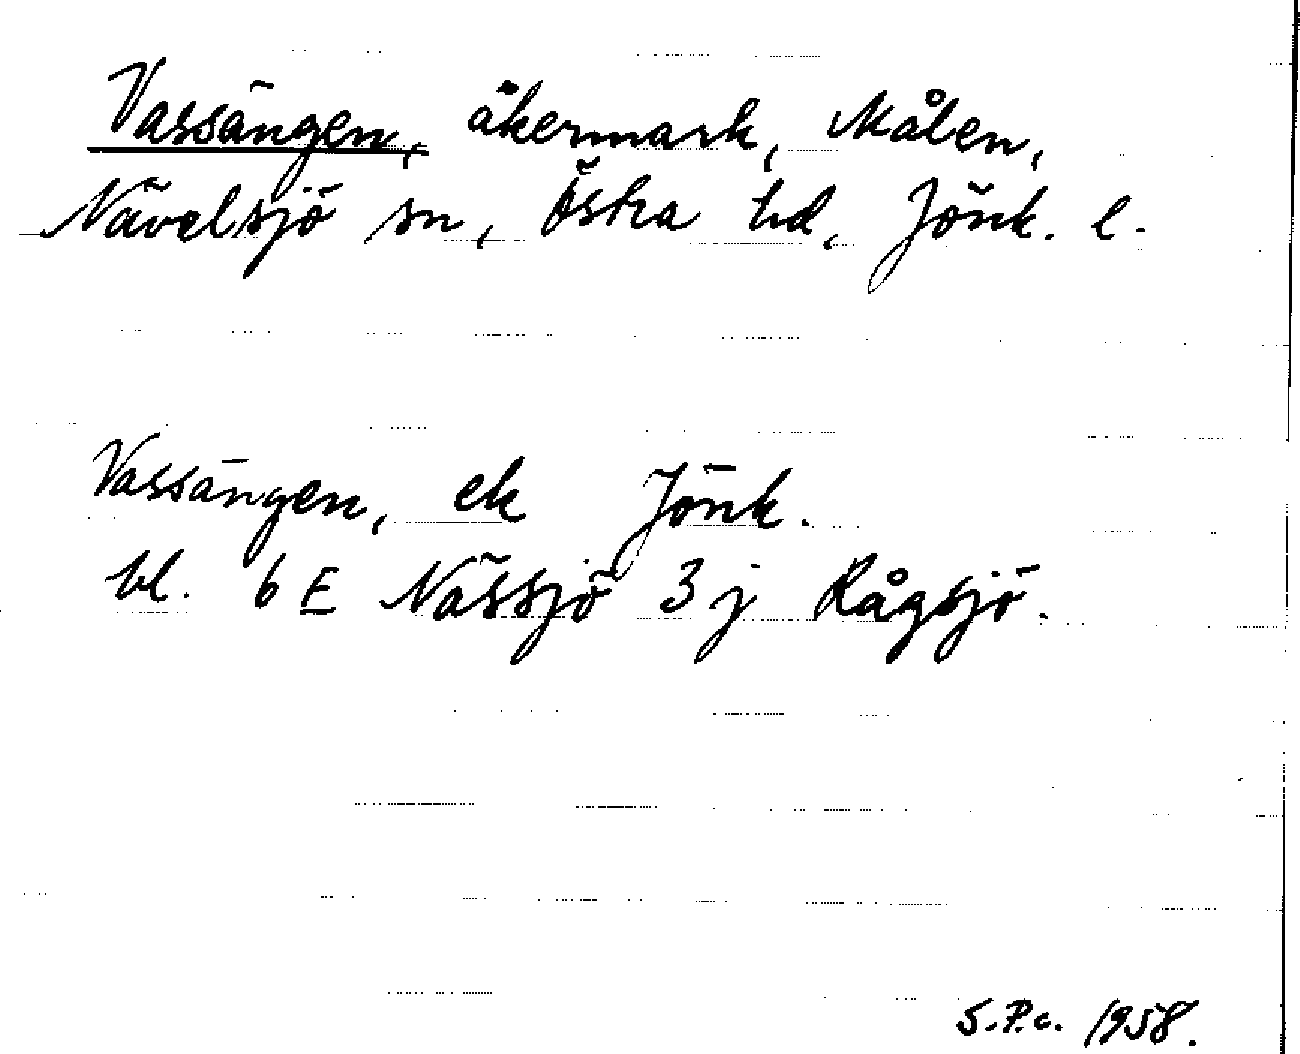 Vassängen, åkermark, Målen,
Nävelsjö sn, Östra hd, Jönk. l.
Vassängen, ek Jönk.
bl. 6 E Nässjö 3 j Rågsjö.
S.P.c. 1958.